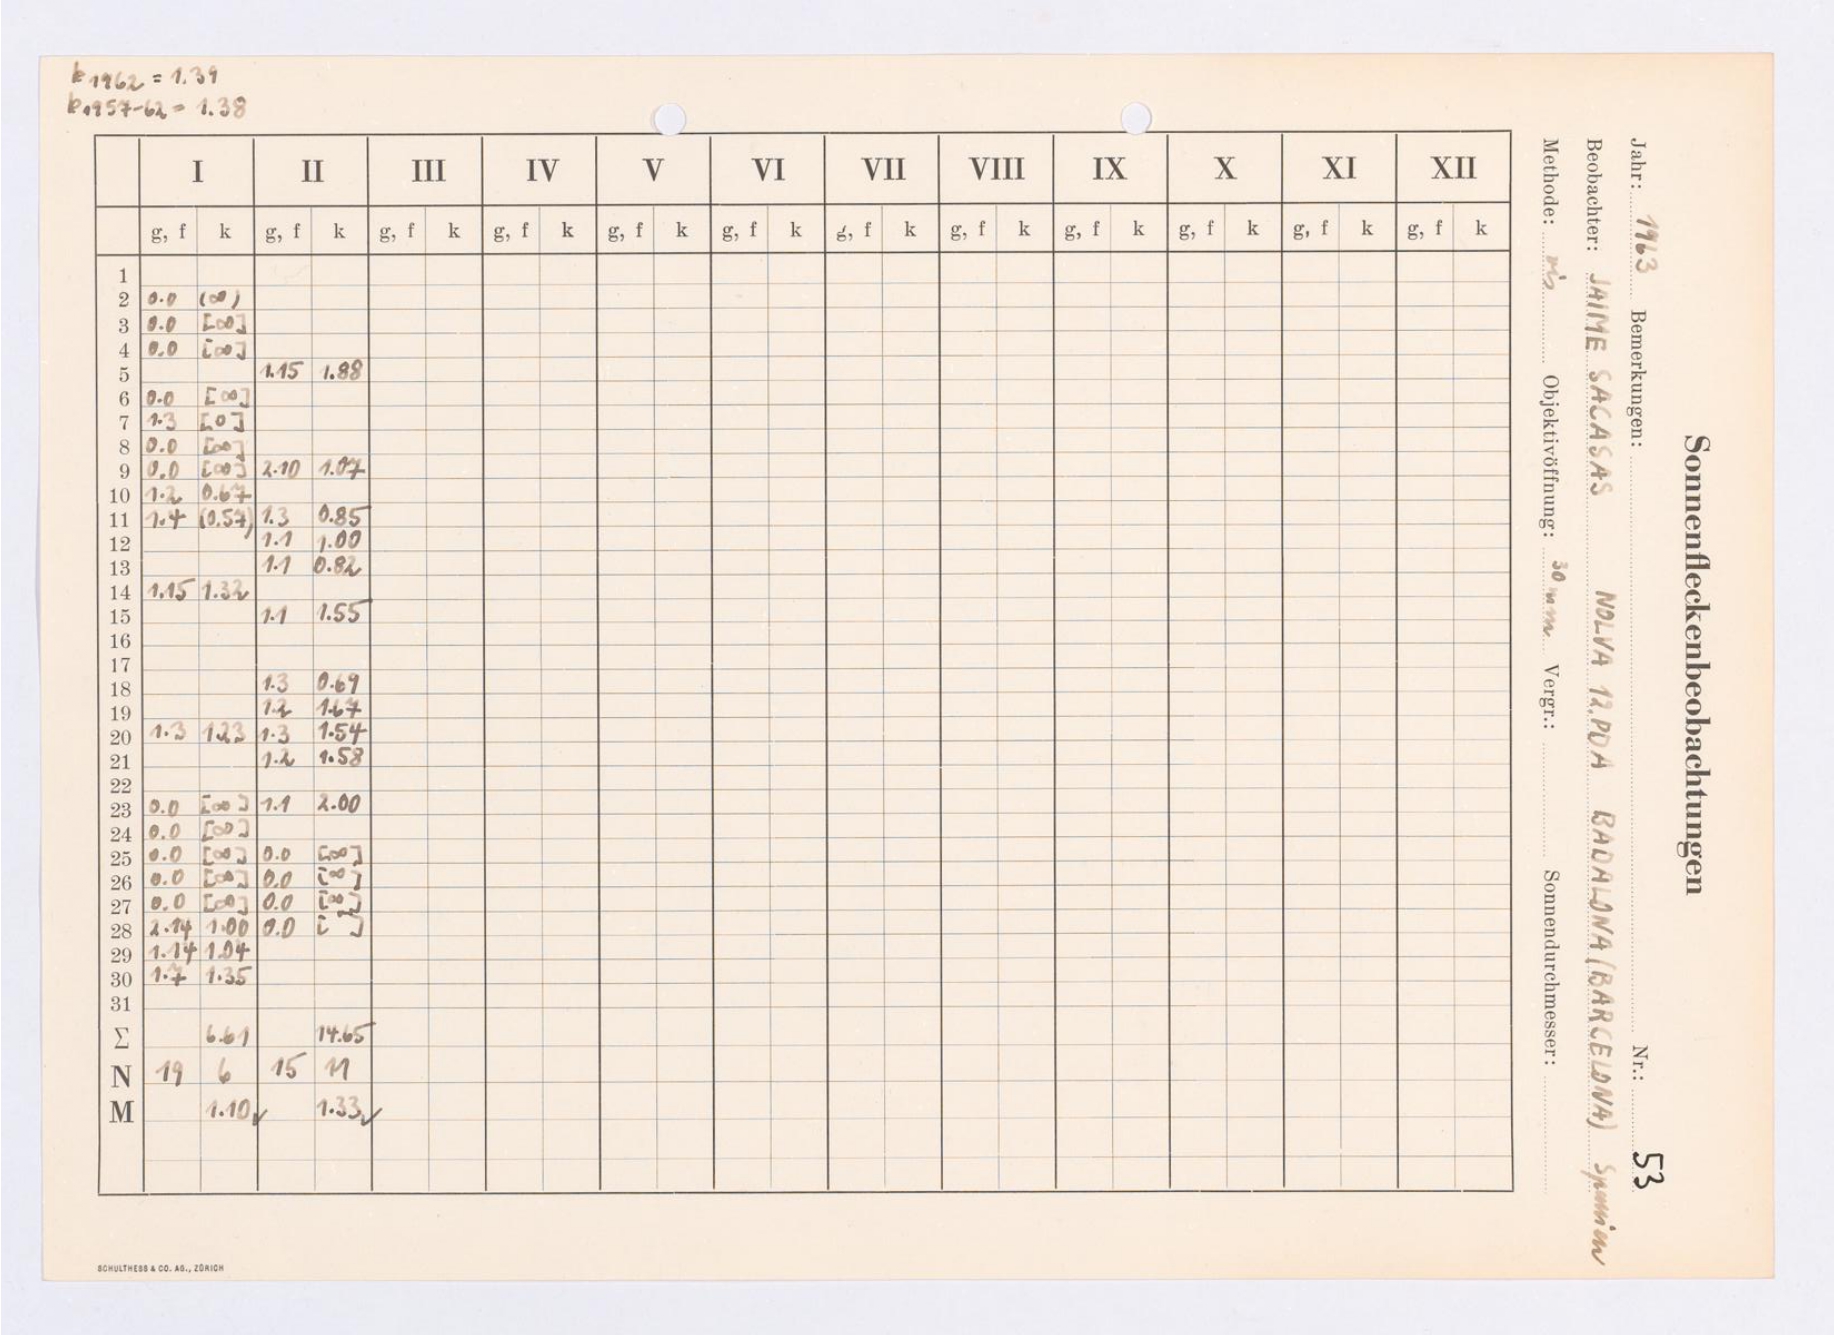 k1962 = 1.39
k1957-62 = 1.38
Sonnenfleckenbeobachtungen
Jahr: 1963 Bemerkungen: Nr.: 53
Beobachter: JAIME SACASAS NOLVA 12.PDA BADALONA (BARCELONA) Spanien
Methode: vis Objektivöffnung: 30 mm Vergr.: Sonnendurchmesser:
I II III IV V VI VII VIII IX X XI XII
g, f k g, f k g, f k g, f k g, f k g, f k g, f k g, f k g, f k g, f k g, f k g, f k
1
2 0.0 (∞)
3 0.0 [∞]
4 0.0 [∞]
5 1.15 1.88
6 0.0 [∞]
7 1.3 [0]
8 0.0 [∞]
9 0.0 [∞] 2.10 1.07
10 1.2 0.67
11 1.4 (0.57) 1.3 0.85
12 1.1 1.00
13 1.1 0.82
14 1.15 1.32
15 1.1 1.55
16
17
18 1.3 0.69
19 1.2 1.67
20 1.3 1.23 1.3 1.54
21 1.2 1.58
22
23 0.0 [∞] 1.1 2.00
24 0.0 [∞]
25 0.0 [∞] 0.0 [∞]
26 0.0 [∞] 0.0 [∞]
27 0.0 [∞] 0.0 [∞]
28 2.14 1.00 0.0 [ ]
29 1.14 1.04
30 1.7 1.35
31
Σ 6.61 14.65
N 19 6 15 11
M 1.10✓ 1.33✓
SCHULTHESS & CO. AG., ZÜRICH